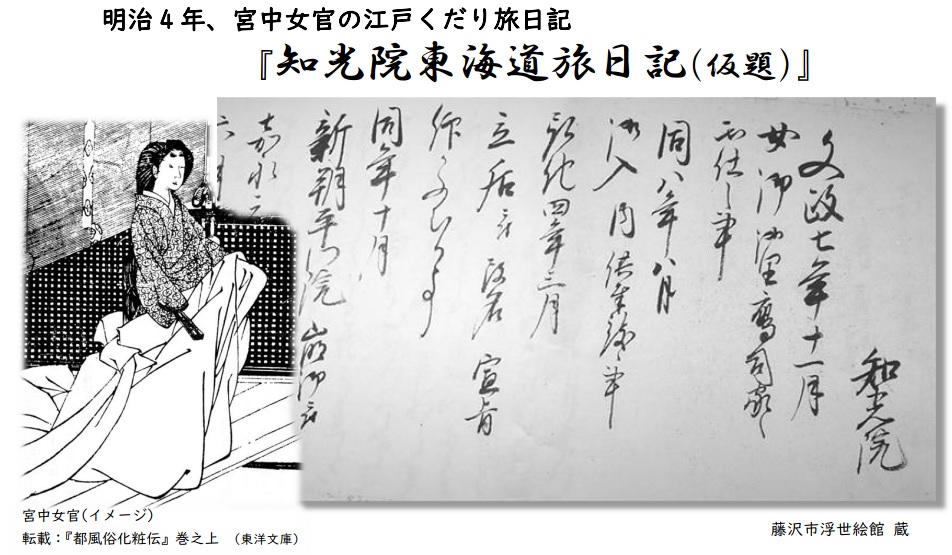 明治4年、宮中女官の江戸くだり旅日記
『知光院東海道旅日記(仮題)』
知光院
文政七年十一月
女御 里鷹司家
仕し事
同八年八月
御入内供奉 事
弘化四年三月
立后 改名 宣旨
同年十月
新朔平門院崩御
嘉永
六
宮中女官(イメージ)
転載:『都風俗化粧伝』巻之上 (東洋文庫)
藤沢市浮世絵館 蔵